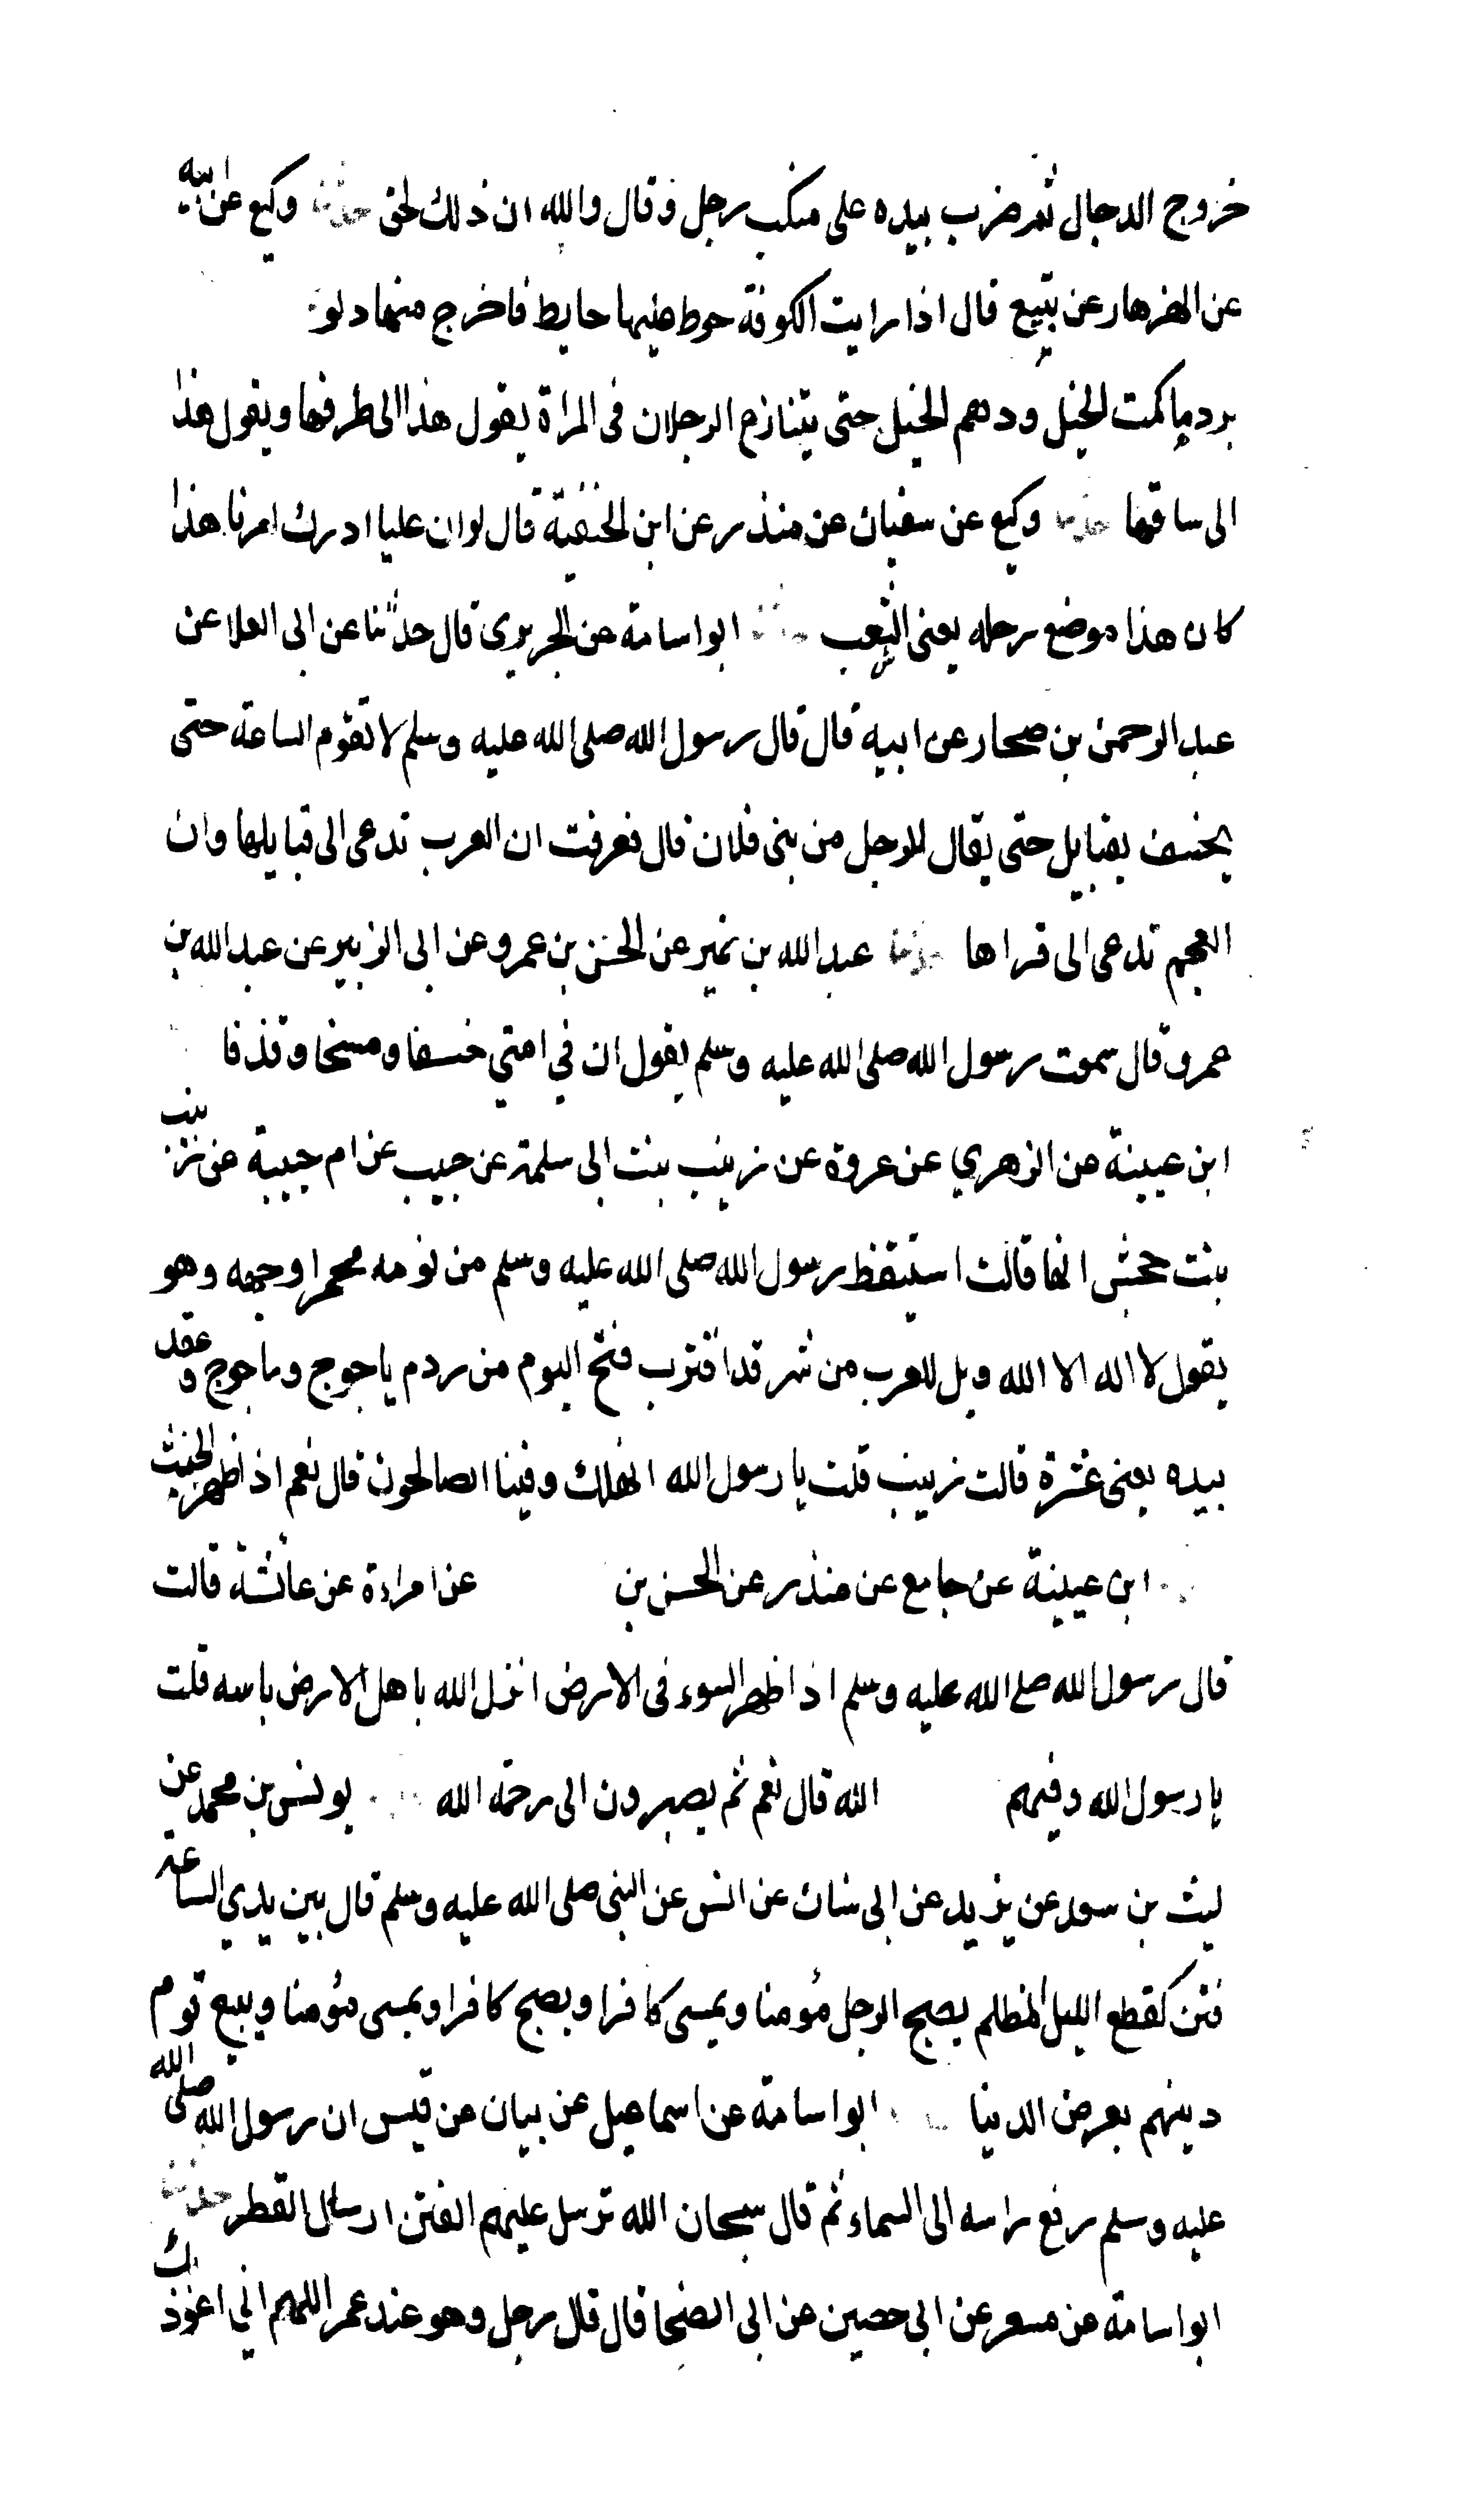 خروج الدجال ثم ضرب بيده على منكب رجل وقال والله ان ذلك لحق حدثنا وكيع عن ابيه
عن الهزهار عن تبيع قال اذا رايت الكوفة حوط عليها حايط فاخرج منها ولو
يرد بها كمت الخيل ودهم الخيل حتى يتنازع الرجلان في المراة يقول هذا الى طرفها ويقول هذا
الى ساقها حدثنا وكيع عن سفيان عن منذر عن ابن الحنفية قال لو ان عليا ادرك امرنا هذا
كان هذا موضع رحله يعني الشعب ابو اسامة عن الجريري قال حدثنا عن ابي العلا عن
عبد الرحمن بن صحار عن ابيه قال قال رسول الله صلى الله عليه وسلم لا تقوم الساعة حتى
يخسف بقبايل حتى يقال للرجل من بني فلان قال فعرفت ان العرب تدعى الى قبايلها وان
العجم تدعى الى قراها حدثنا عبد الله بن نمير عن الحسن بن عمرو عن ابي الزبير عن عبد الله بن
عمرو قال سمعت رسول الله صلى الله عليه وسلم يقول ان في امتي خسفا ومسخا وقذفا
ابن عيينة عن الزهري عن عروة عن زينب بنت ابي سلمة عن حبيب عن ام حبيبة عن زينب
بنت جحش انها قالت استيقظ رسول الله صلى الله عليه وسلم من نومه محمرا وجهه وهو
يقول لا اله الا الله ويل للعرب من شر قد اقترب فتح اليوم من ردم ياجوج وماجوج وعقد
بيده يعني عشرة قالت زينب قلت يا رسول الله انهلك وفينا الصالحون قال نعم اذا ظهر الخبث
ابن عيينة عن جامع عن منذر عن الحسن بن عن امراة عن عائشة قالت
قال رسول الله صلع الله عليه وسلم اذا ظهر السوء في الارض انزل الله باهل الارض باسه قلت
يا رسول الله وفيهم الله قال نعم ثم يصيرون الى رحمة الله يونس بن محمد عن
ليث بن سعد عن يزيد عن ابي سنان عن انس عن النبي صلى الله عليه وسلم قال بين يدي الساعة
فتن كقطع الليل المظلم يصبح الرجل مؤمنا ويمسي كافرا ويصبح كافرا ويمسي مؤمنا ويبيع قوم
دينهم بعرض الدنيا ابو اسامة عن اسماعيل عن بيان عن قيس ان رسول الله صلى الله
عليه وسلم رفع راسه الى السماء ثم قال سبحان الله ترسل عليهم الفتن ارسال القطر حدثنا
ابو اسامة عن مسعر عن ابي حصين عن ابي الضحا قال قال رجل وهو عند عمر اللهم اني اعوذ بك